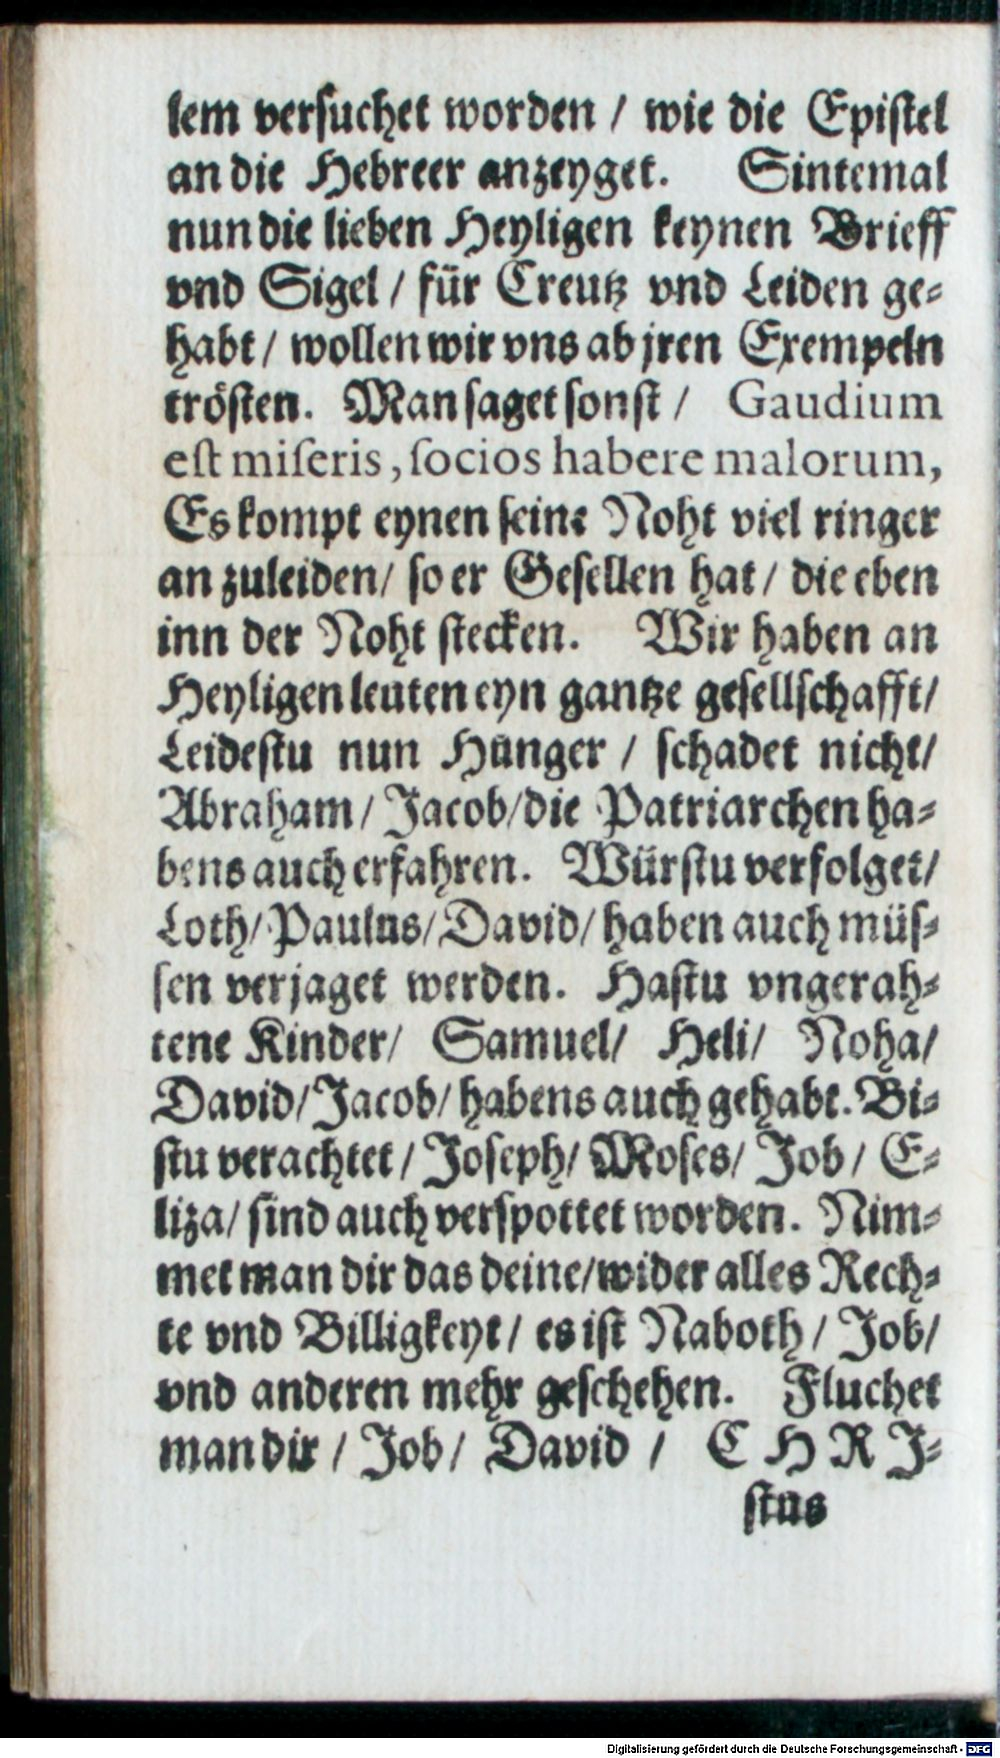 lem versuchet worden / wie die Epistel
an die Hebreer anzeyget. Sintemal
nun die lieben Heyligen keynen Brieff
vnd Sigel / für Creutz vnd Leiden ge-
habt / wollen wir vns ab jren Exempeln
trösten. Man saget sonst / Gaudium
est miseris, socios habere malorum,
Es kompt eynen seine Noht viel ringer
an zuleiden / so er Gesellen hat / die eben
inn der Noht stecken. Wir haben an
Heyligen leuten eyn gantze gesellschafft /
Leidestu nun Hunger / schadet nicht /
Abraham / Jacob / die Patriarchen ha-
bens auch erfahren. Würstu verfolget /
Loth / Paulus / David / haben auch müs-
sen verjaget werden. Hastu vngerah-
tene Kinder / Samuel / Heli / Noha /
David / Jacob / habens auch gehabt. Bi-
stu verachtet / Joseph / Moses / Job / E-
liza / sind auch verspottet worden. Nim-
met man dir das deine / wider alles Rech-
te vnd Billigkeyt / es ist Naboth / Job /
vnd anderen mehr geschehen. Fluchet
man dir / Job / David / C H R J-
stus
Digitalisierung gefördert durch die Deutsche Forschungsgemeinschaft - DFG